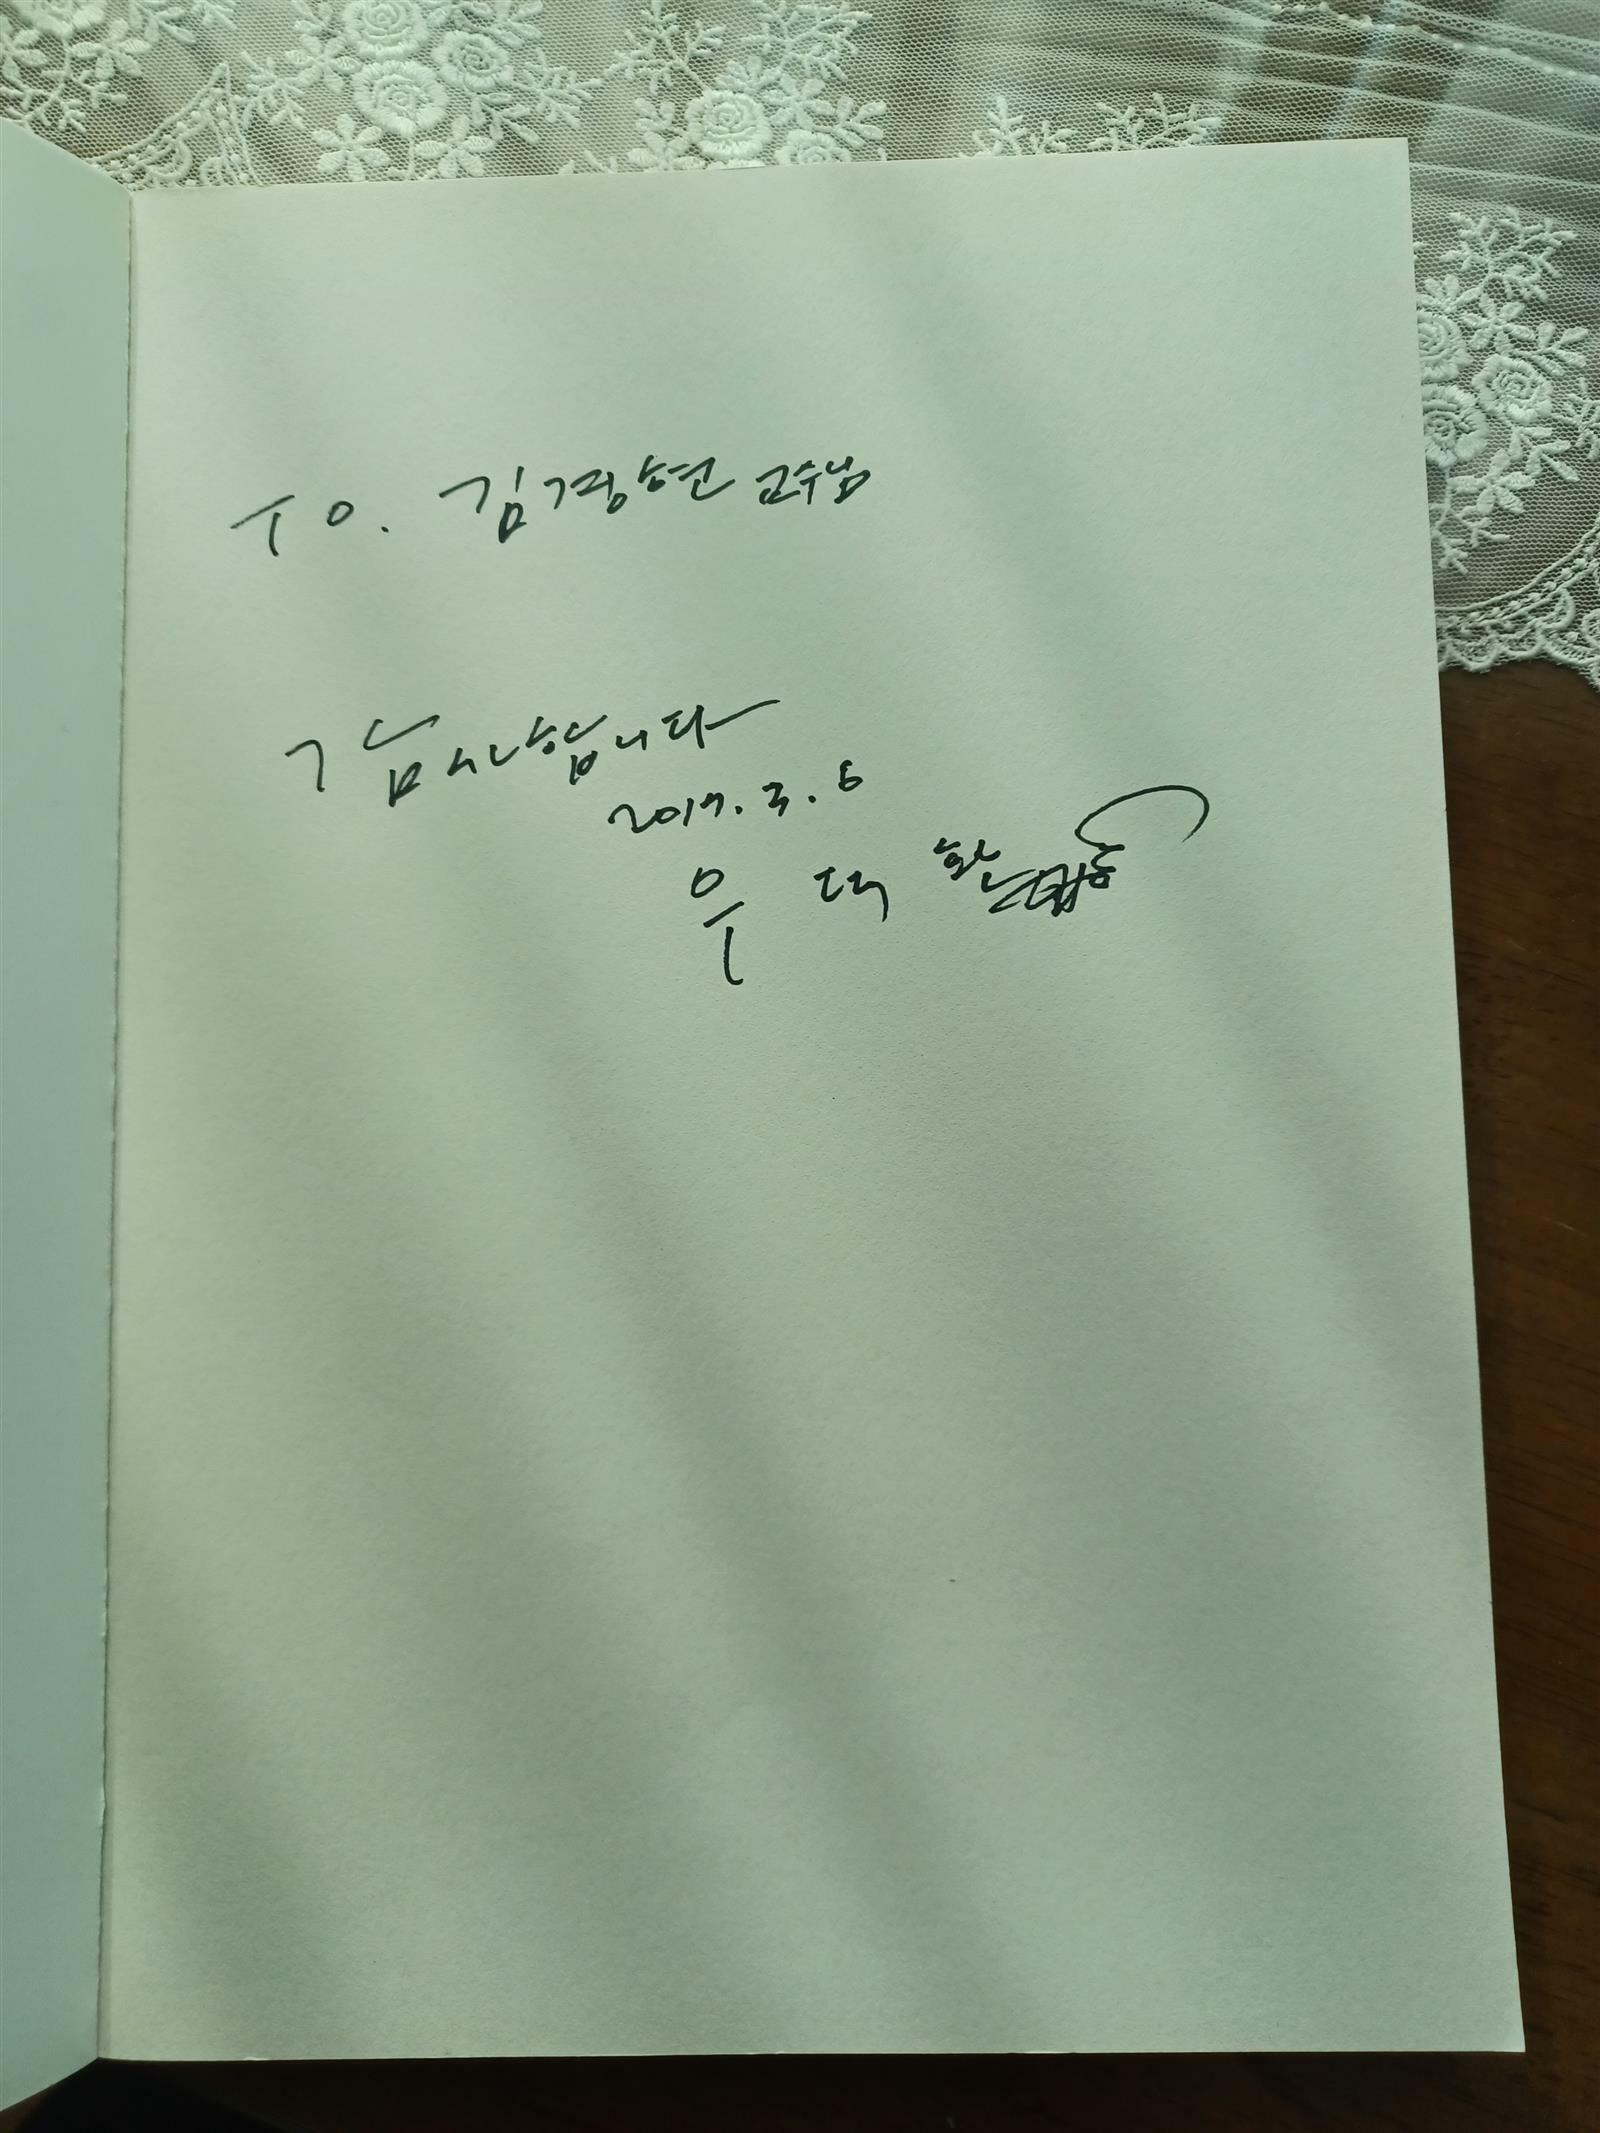 TO. 김경현 교수님
감사합니다
2019. 3. 6
윤덕환